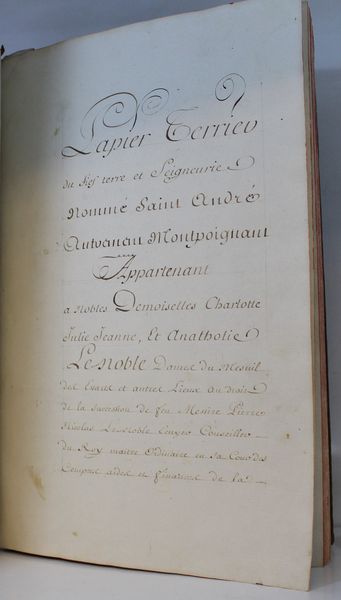 Papier Terrier
du fief terre et Seigneurie
Nommé Saint André
Autrement Montpoignant
Appartenant
a Nobles Demoiselles Charlotte
Julie Jeanne, Et Anathotie
Le Noble Dames du Mesnil
des et autres Lieux au droit
de la succession de feu Messire Pierre
Nicolas Le Noble Conseiller
du Roy maitre Ordinaire en sa Cour des
Comptes aides et finances de la